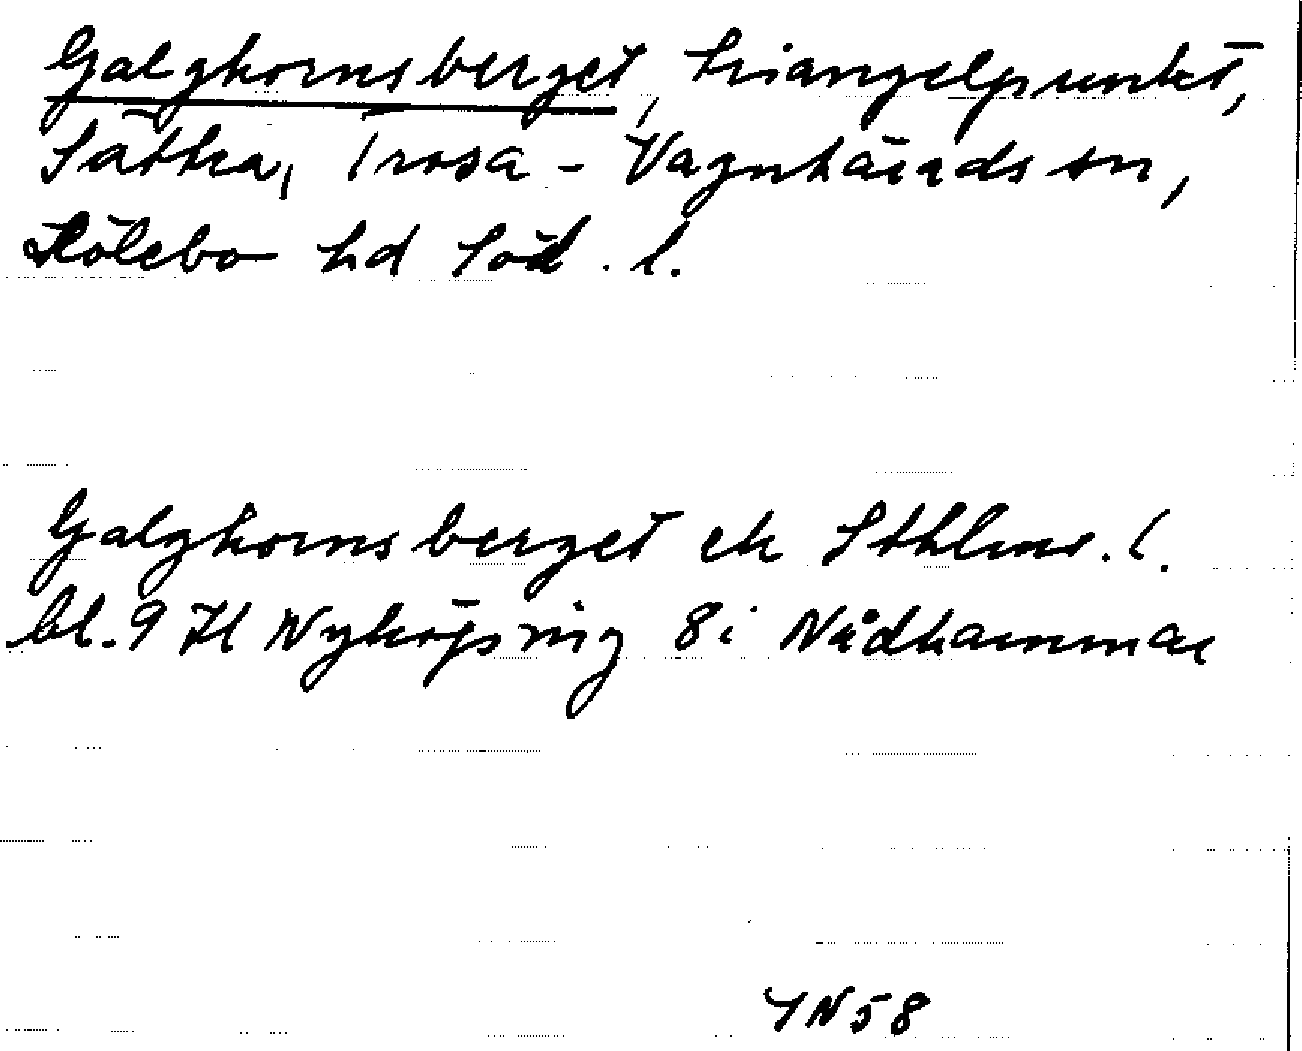 Galghornsberget, triangelpunkt,
Sätra, Trosa-Vagnhärads sn,
Hölebo hd Söd. l.
Galghornsberget ek Sthlms. l.
bl. 9 H Nyköping 8i Nådhammar
YN58